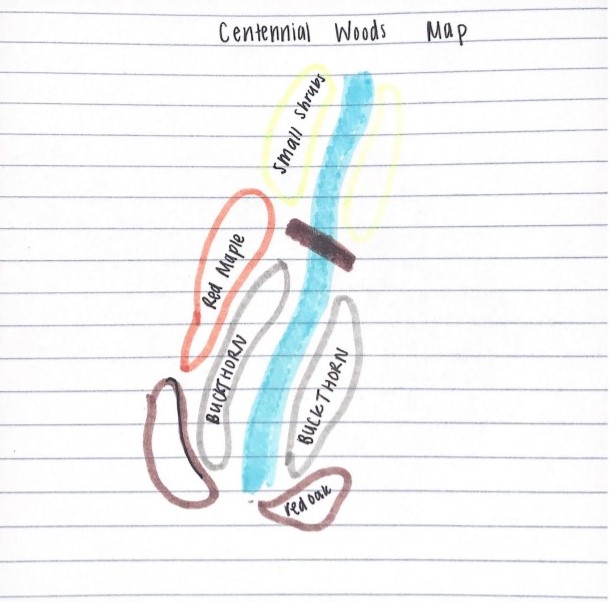 Centennial Woods Map
Small Shrubs
Red Maple
BUCKTHORN
BUCKTHORN
red oak